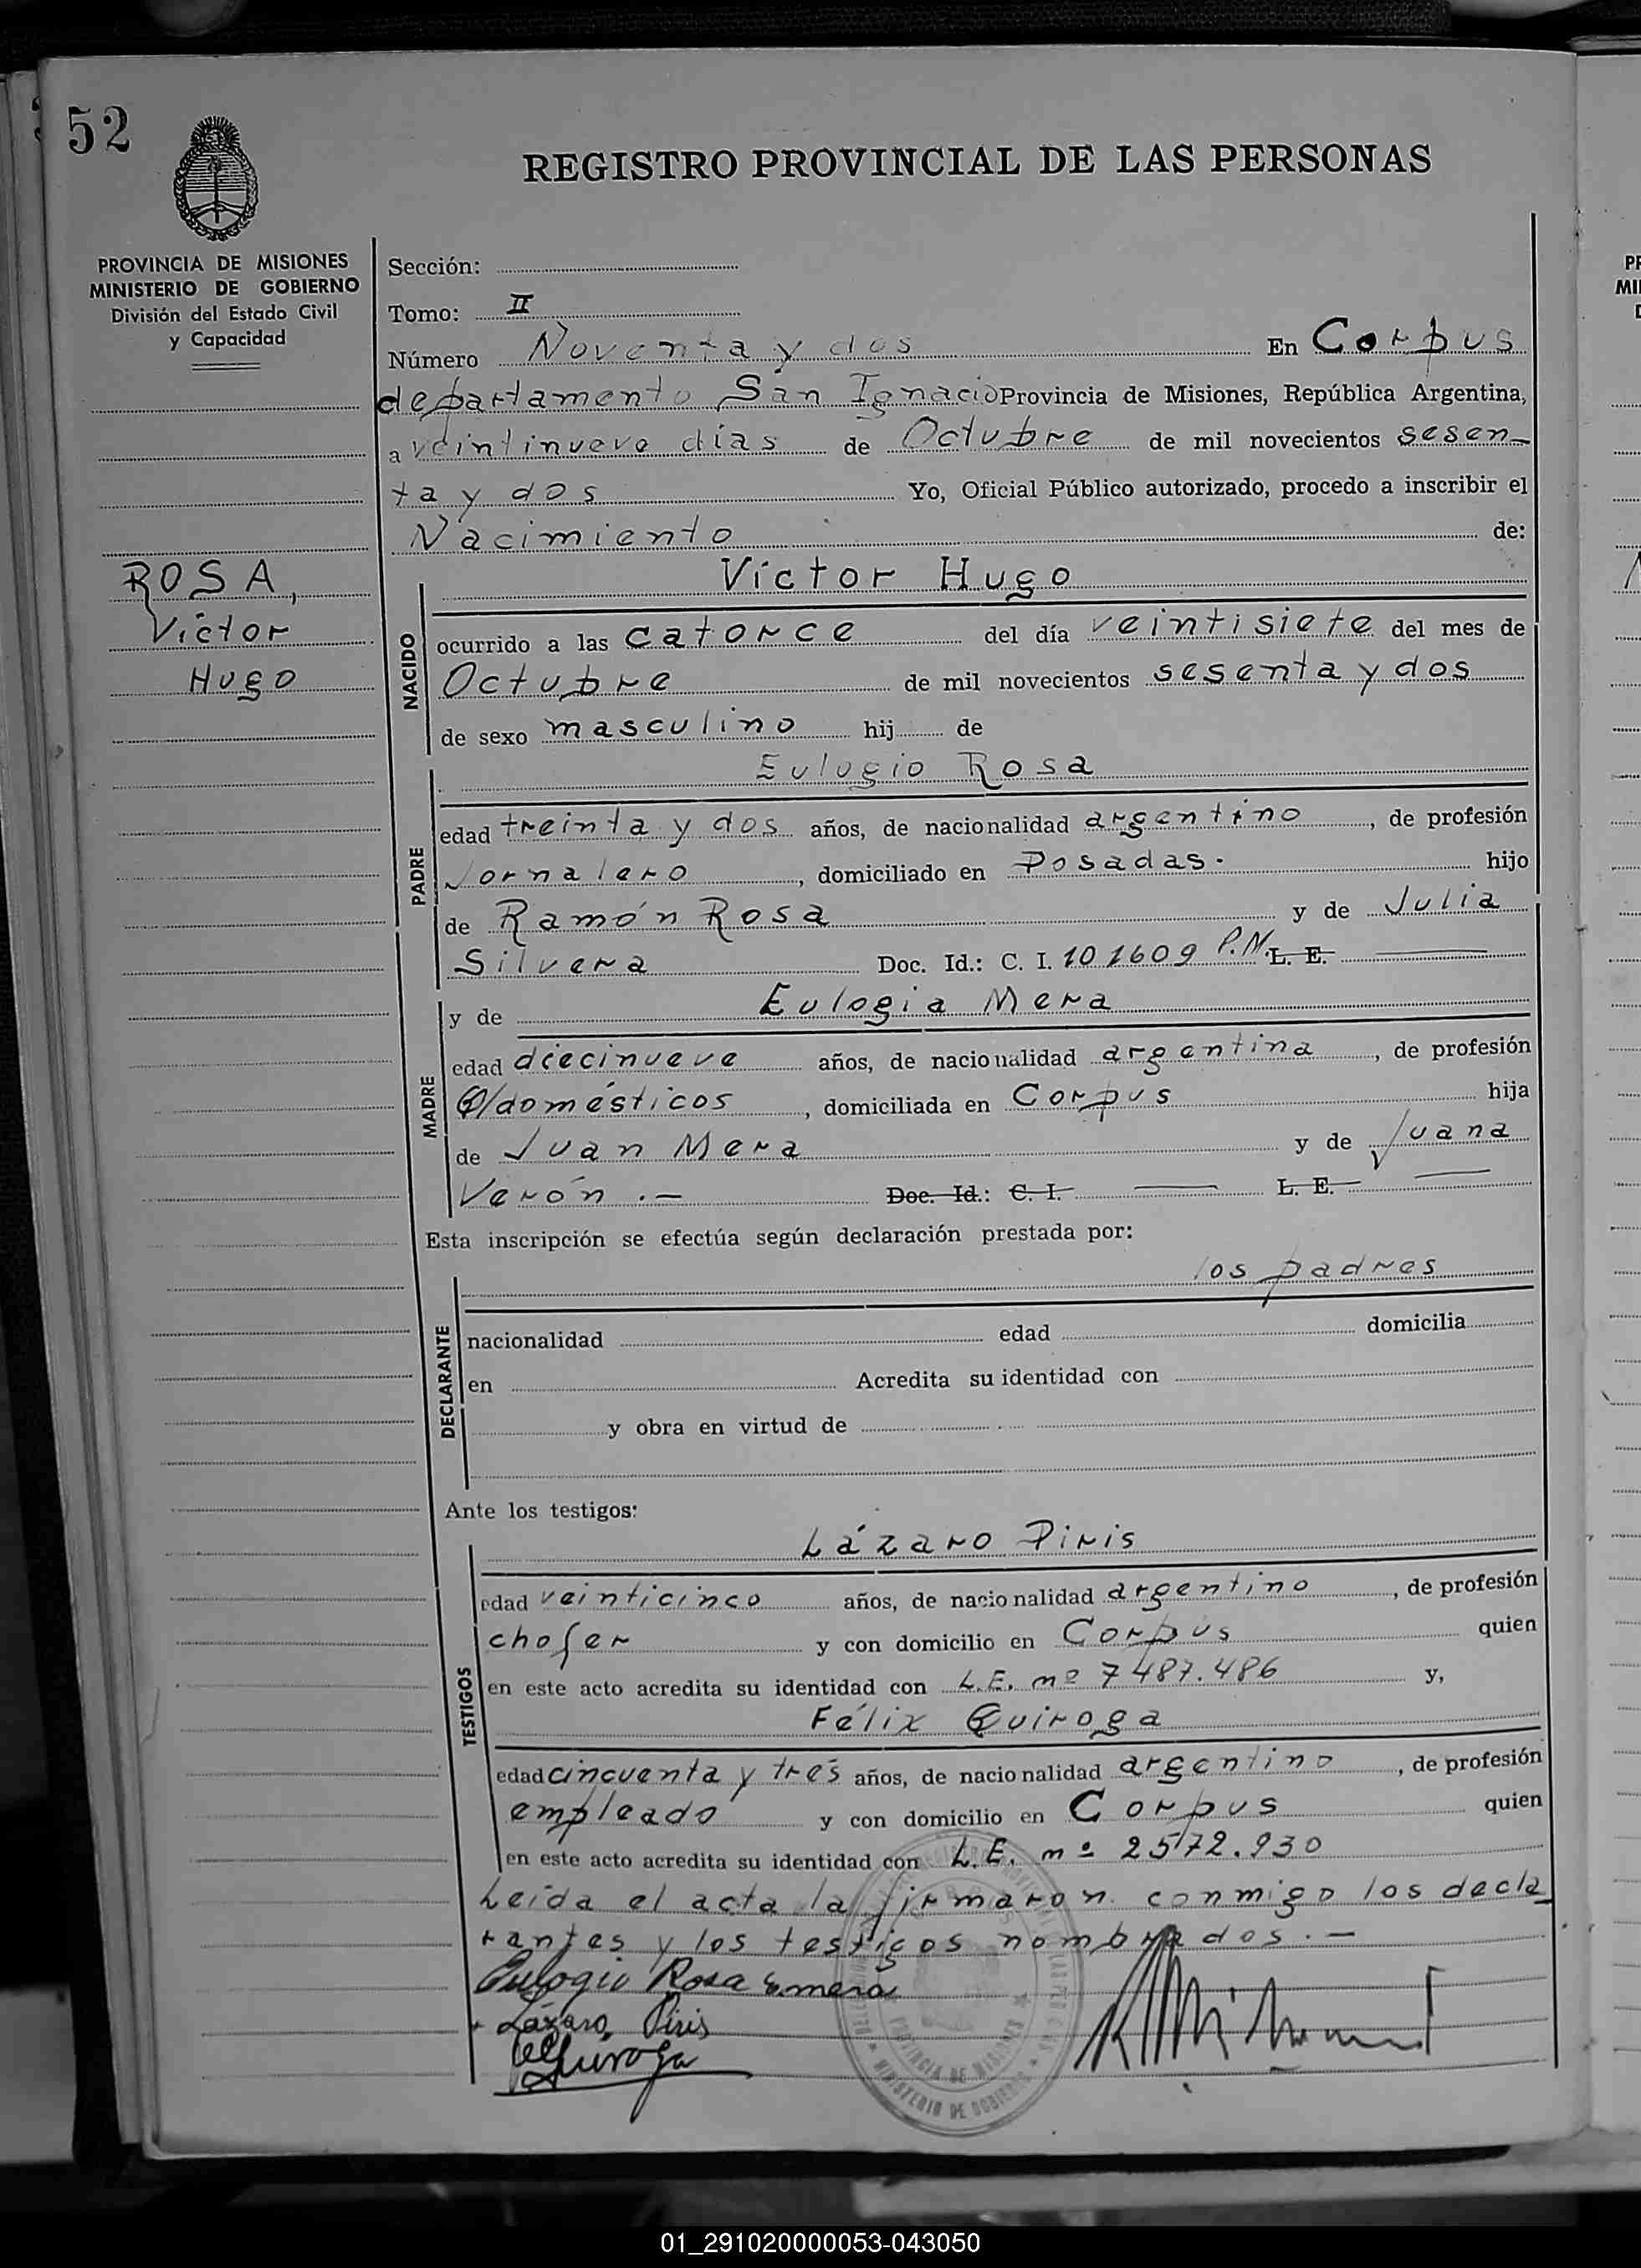 52
REGISTRO PROVINCIAL DE LAS PERSONAS
PROVINCIA DE MISIONES
MINISTERIO DE GOBIERNO
División del Estado Civil
y Capacidad
ROSA,
Víctor
Hugo
Sección:
Tomo: II
Número Noventa y dos En Corpus
departamento San Ignacio Provincia de Misiones, República Argentina,
a veintinueve días de Octubre de mil novecientos sesen-
ta y dos Yo, Oficial Público autorizado, procedo a inscribir el
Nacimiento de:
NACIDO
Víctor Hugo
ocurrido a las catorce del día veintisiete del mes de
Octubre de mil novecientos sesenta y dos
de sexo masculino hij de
PADRE
Eulogio Rosa
edad treinta y dos años, de nacionalidad argentino, de profesión
Jornalero, domiciliado en Posadas. hijo
de Ramón Rosa y de Julia
Silvera Doc. Id.: C. I. 101609 P.N. L. E.
MADRE
y de Eulogia Mera
edad diecinueve años, de nacionalidad argentina, de profesión
Q/domésticos, domiciliada en Corpus hija
de Juan Mera y de Juana
Verón .- Doc. Id.: C. I. L. E.
Esta inscripción se efectúa según declaración prestada por:
DECLARANTE
los padres
nacionalidad edad domicilia
en Acredita su identidad con
y obra en virtud de
Ante los testigos:
TESTIGOS
Lázaro Piris
edad veinticinco años, de nacionalidad argentino, de profesión
chofer y con domicilio en Corpus quien
en este acto acredita su identidad con L.E. nº 7487.486 y,
Félix Quiroga
edad cincuenta y tres años, de nacionalidad argentino, de profesión
empleado y con domicilio en Corpus quien
en este acto acredita su identidad con L.E. nº 2572.930
Leída el acta la firmaron conmigo los decla
rantes y los testigos nombrados.-
Eulogio Rosa E mera
Lázaro Piris
Quiroga
PROVINCIA DE MISIONES
MINISTERIO DE GOBIERNO
01_291020000053-043050